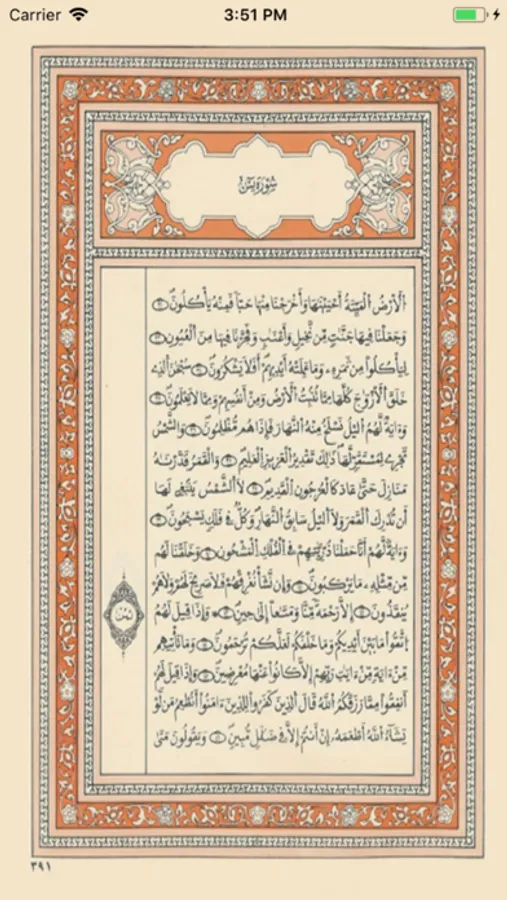 Carrier 3:51 PM
سُورَة يسٓ
ٱلۡأَرۡضُ ٱلۡمَيۡتَةُ أَحۡيَيۡنَٰهَا وَأَخۡرَجۡنَا مِنۡهَا حَبّٗا فَمِنۡهُ يَأۡكُلُونَ
وَجَعَلۡنَا فِيهَا جَنَّٰتٖ مِّن نَّخِيلٖ وَأَعۡنَٰبٖ وَفَجَّرۡنَا فِيهَا مِنَ ٱلۡعُيُونِ
لِيَأۡكُلُواْ مِن ثَمَرِهِۦ وَمَا عَمِلَتۡهُ أَيۡدِيهِمۡۚ أَفَلَا يَشۡكُرُونَ سُبۡحَٰنَ ٱلَّذِي
خَلَقَ ٱلۡأَزۡوَٰجَ كُلَّهَا مِمَّا تُنۢبِتُ ٱلۡأَرۡضُ وَمِنۡ أَنفُسِهِمۡ وَمِمَّا لَا يَعۡلَمُونَ
وَءَايَةٞ لَّهُمُ ٱلَّيۡلُ نَسۡلَخُ مِنۡهُ ٱلنَّهَارَ فَإِذَا هُم مُّظۡلِمُونَ وَٱلشَّمۡسُ
تَجۡرِي لِمُسۡتَقَرّٖ لَّهَاۚ ذَٰلِكَ تَقۡدِيرُ ٱلۡعَزِيزِ ٱلۡعَلِيمِ وَٱلۡقَمَرَ قَدَّرۡنَٰهُ
مَنَازِلَ حَتَّىٰ عَادَ كَٱلۡعُرۡجُونِ ٱلۡقَدِيمِ لَا ٱلشَّمۡسُ يَنۢبَغِي لَهَآ
أَن تُدۡرِكَ ٱلۡقَمَرَ وَلَا ٱلَّيۡلُ سَابِقُ ٱلنَّهَارِۚ وَكُلّٞ فِي فَلَكٖ يَسۡبَحُونَ
وَءَايَةٞ لَّهُمۡ أَنَّا حَمَلۡنَا ذُرِّيَّتَهُمۡ فِي ٱلۡفُلۡكِ ٱلۡمَشۡحُونِ وَخَلَقۡنَا لَهُم
مِّن مِّثۡلِهِۦ مَا يَرۡكَبُونَ وَإِن نَّشَأۡ نُغۡرِقۡهُمۡ فَلَا صَرِيخَ لَهُمۡ وَلَا هُمۡ
يُنقَذُونَ إِلَّا رَحۡمَةٗ مِّنَّا وَمَتَٰعًا إِلَىٰ حِينٖ وَإِذَا قِيلَ لَهُمُ
ٱتَّقُواْ مَا بَيۡنَ أَيۡدِيكُمۡ وَمَا خَلۡفَكُمۡ لَعَلَّكُمۡ تُرۡحَمُونَ وَمَا تَأۡتِيهِم
مِّنۡ ءَايَةٖ مِّنۡ ءَايَٰتِ رَبِّهِمۡ إِلَّا كَانُواْ عَنۡهَا مُعۡرِضِينَ وَإِذَا قِيلَ لَهُمۡ
أَنفِقُواْ مِمَّا رَزَقَكُمُ ٱللَّهُ قَالَ ٱلَّذِينَ كَفَرُواْ لِلَّذِينَ ءَامَنُوٓاْ أَنُطۡعِمُ مَن لَّوۡ
يَشَآءُ ٱللَّهُ أَطۡعَمَهُۥٓ إِنۡ أَنتُمۡ إِلَّا فِي ضَلَٰلٖ مُّبِينٖ وَيَقُولُونَ مَتَىٰ
ثمن
٣٩١